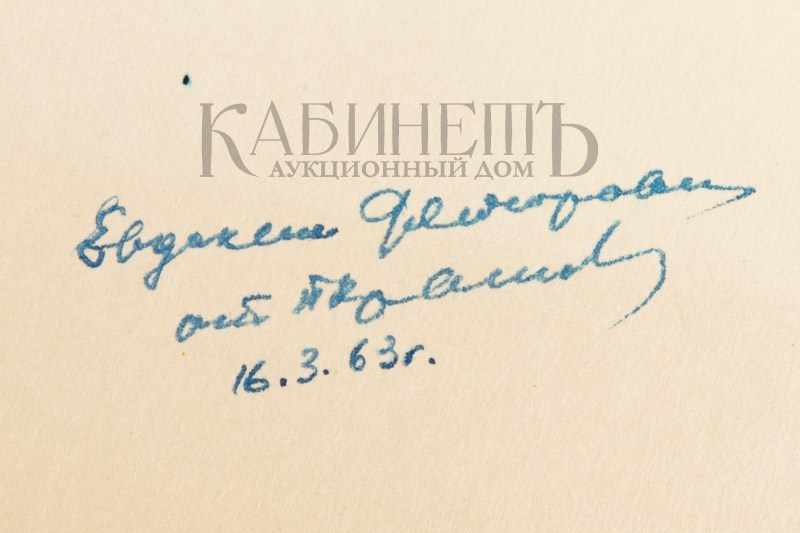 КАБИНЕТЪ
АУКЦИОННЫЙ ДОМ
Евдокии
от
16.3.63г.